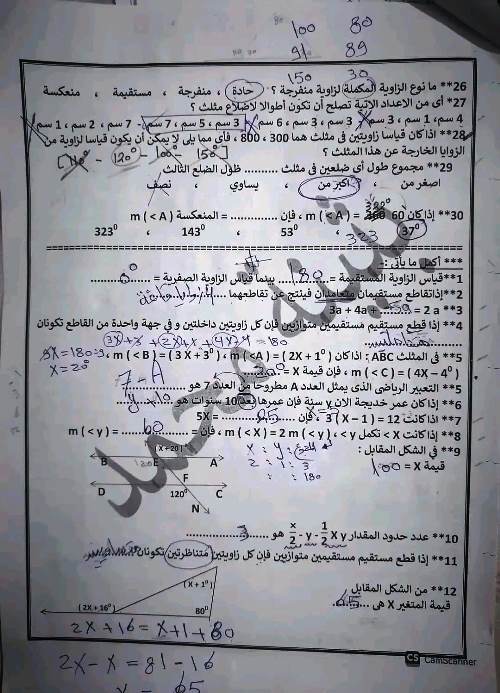 100 80
91 89
150 30
26** ما نوع الزاوية المكملة لزاوية منفرجة ؟ حادة ، منفرجة ، مستقيمة ، منعكسة
27* أى من الاعداد الاتية تصلح أن تكون أطوالا لاضلاع مثلث ؟
4 سم ، 1 سم ، 3 سم 3 سم ، 3 سم ، 6 سم 3 سم ، 5 سم ، 7 سم 7 سم ، 2 سم ، 1 سم
28** اذا كان قياسا زاويتين فى مثلث هما 300 ، 800 ، فأى مما يلى لا يمكن أن يكون قياسا لزاوية من
الزوايا الخارجة عن هذا المثلث ؟
[110° - 120° - 100° - 150°]
29** مجموع طول أى ضلعين فى مثلث .......... طول الضلع الثالث
اصغر من ، اكبر من ، يساوي ، نصف
30** إذا كان m ( < A ) = 60 ، فإن ............ = المنعكسة m ( < A )
37⁰ ، 53⁰ ، 143⁰ ، 323⁰
*** أكمل ما يأتى :-
1**قياس الزاوية المستقيمة = 180 بينما قياس الزاوية الصفرية = 0°
2**إذاتقاطع مستقيمان متعامدان فينتج عن تقاطعهما
3a + 4a + ...... = 2 a **3
4** إذا قطع مستقيم مستقيمين متوازيين فإن كل زاويتين داخلتين و في جهة واحدة من القاطع تكونان
3X+3+2X+1+4X-4=180
5** فى المثلث ABC : اذا كان m ( < A ) = ( 2X + 1⁰ ) ، m ( < B ) = ( 3 X + 3⁰ ) ،
9X = 180
m ( < C ) = ( 4X – 4⁰ ) ، فإن قيمة X =
X = 20°
5** التعبير الرياضى الذى يمثل العدد A مطروحا من العدد 7 هو 7 - A
6** إذا كان عمر خديجة الان y سنة فإن عمرها بعد 10 سنوات هو y+10
7** اذا كانت 12 = ( X – 1 ) 3 ، فإن 5X = 25
X=5
8** إذا كانت X > تكمل y > ، m ( < X) = 2 m ( < y ) ، فإن m ( < y) = 60
9** فى الشكل المقابل :
قيمة X = 100
x : y :
2 : 1 : 3
: : 180
( X + 20 )⁰
B E A
120
F
D C
120⁰
N
10** عدد حدود المقدار x/2 - y - 1/2 X y هو 3
11** إذا قطع مستقيم مستقيمين متوازيين فإن كل زاويتين متناظرتين تكونان
12** من الشكل المقابل
قيمة المتغير X هى 65
( X + 1⁰ )
( 2X + 16⁰ )
80⁰
2X+16 = X+1+80
2X-X = 81-16
X = 65
CS CamScanner